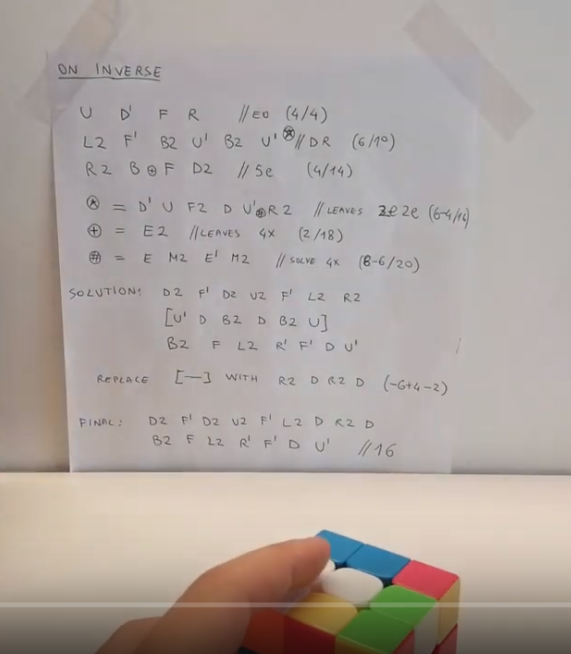 ON INVERSE
U D' F R // EO (4/4)
L2 F' B2 U' B2 U' ⊛ // DR (6/10)
R2 B ⊕ F D2 // 5e (4/14)
⊛ = D' U F2 D U' R2 // LEAVES 2e 2e (6-4/16)
⊕ = E2 // LEAVES 4X (2/18)
# = E M2 E' M2 // SOLVE 4X (8-6/20)
SOLUTION: D2 F' D2 U2 F' L2 R2
[U' D B2 D B2 U]
B2 F L2 R' F' D U'
REPLACE [—] WITH R2 D R2 D (-6+4-2)
FINAL: D2 F' D2 U2 F' L2 D R2 D
B2 F L2 R' F' D U' // 16